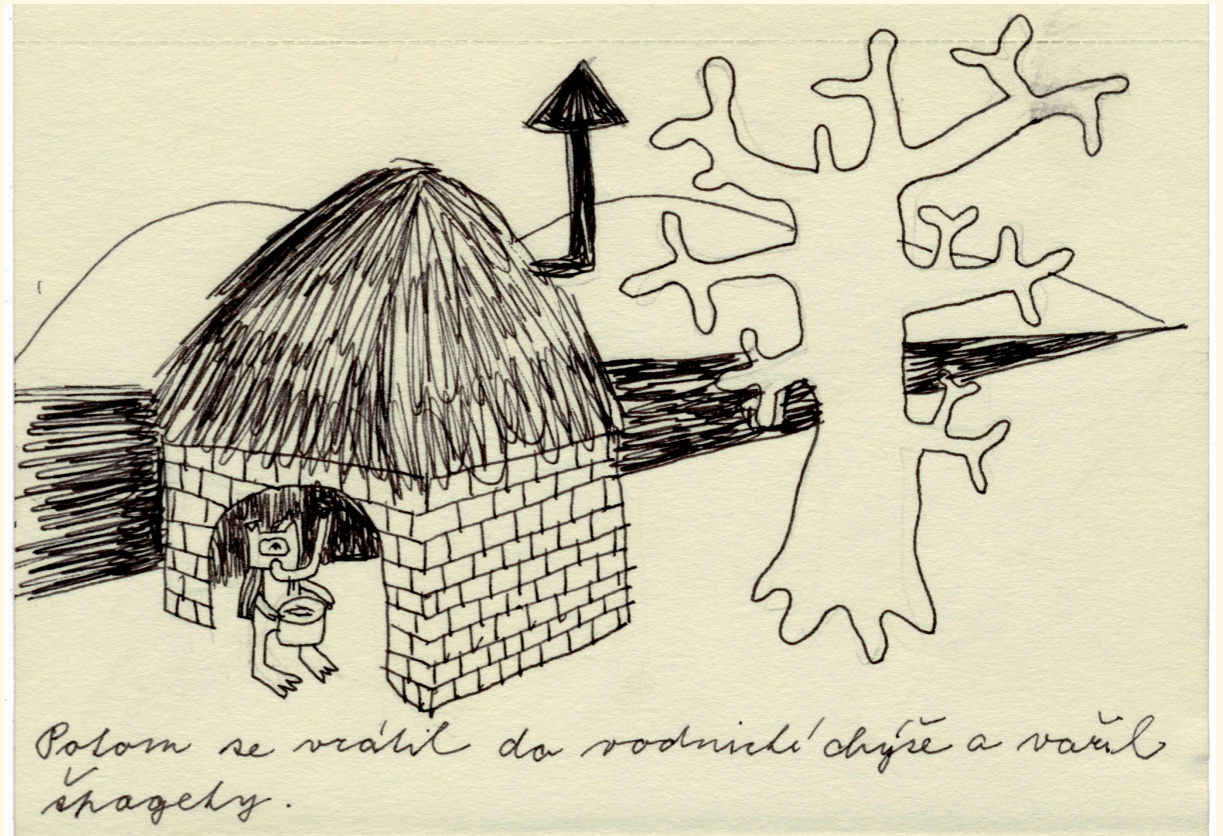 Potom se vrátil do vodnické chýše a vařil
špagety.